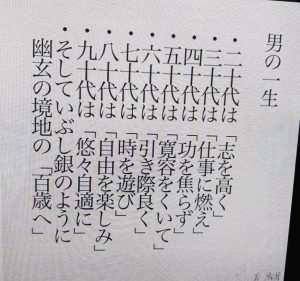 男の一生
・二十代は「志を高く」
・三十代は「仕事に燃え」
・四十代は「功を焦らず」
・五十代は「寛容をくいて」
・六十代は「引き際良く」
・七十代は「時を遊び」
・八十代は「自由を楽しみ」
・九十代は「悠々自適に」
・そしていぶし銀のように
幽玄の境地の「百歳へ」